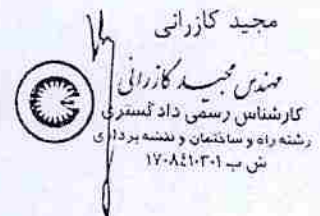 مجید کازرانی
مهندس مجید کازرانی
کارشناس رسمی دادگستری
رشته راه و ساختمان و نقشه برداری
ش پ ۱۷-۰۸٤۱۰۳۰۱